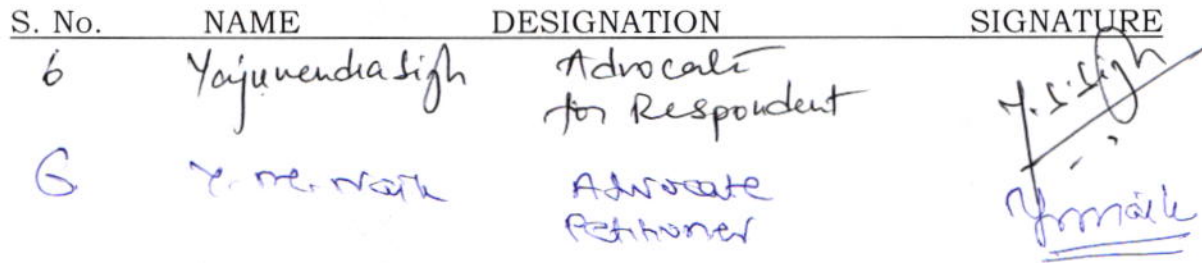 S. No. NAME DESIGNATION SIGNATURE
6 Yajuvendra Sigh Advocate Y. S. Sigh
for Respondent
6 Y. M. Naik Advocate Ymnaik
Petitioner